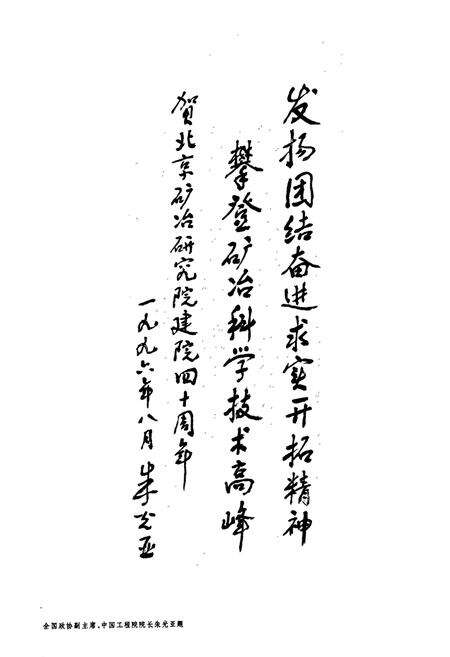 发扬团结奋进求实开拓精神
攀登矿冶科学技术高峰
贺北京矿冶研究院建院四十周年
一九九六年八月 朱光亚
全国政协副主席、中国工程院院长朱光亚题